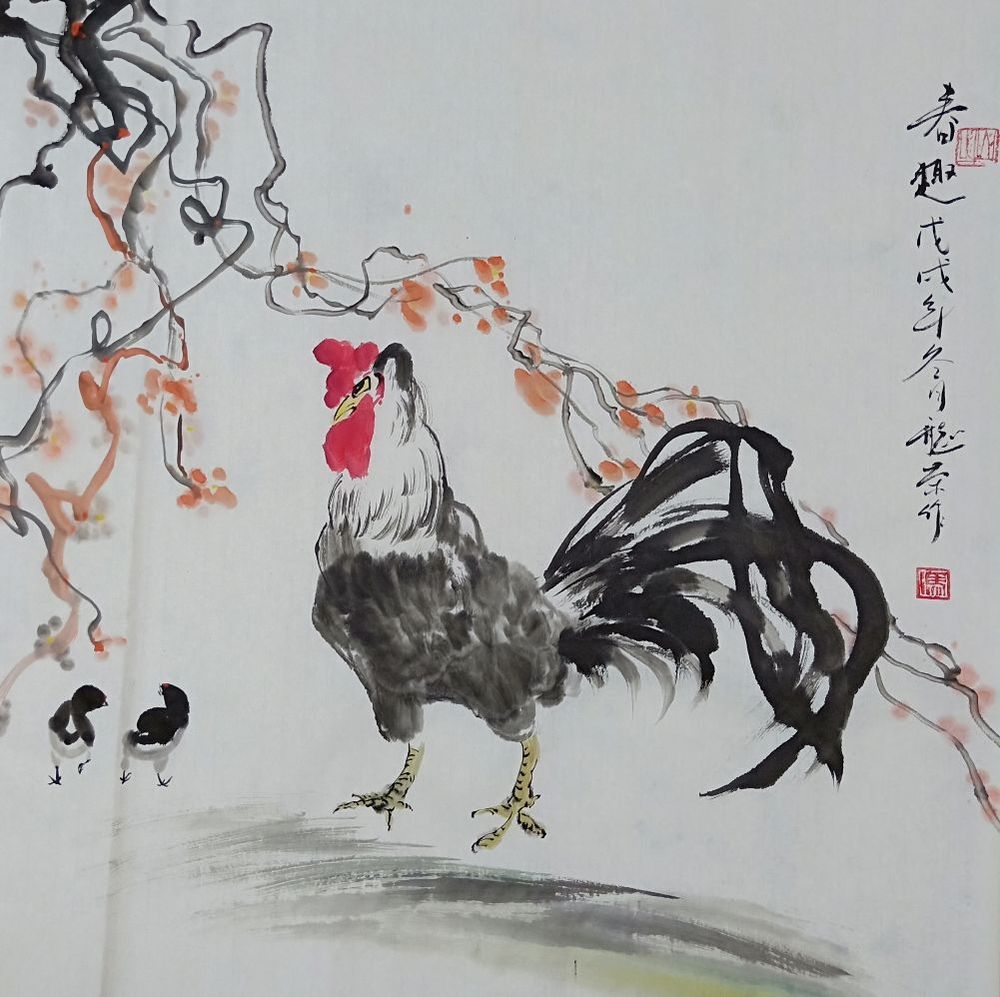 春趣戊戌年冬月龍荣作